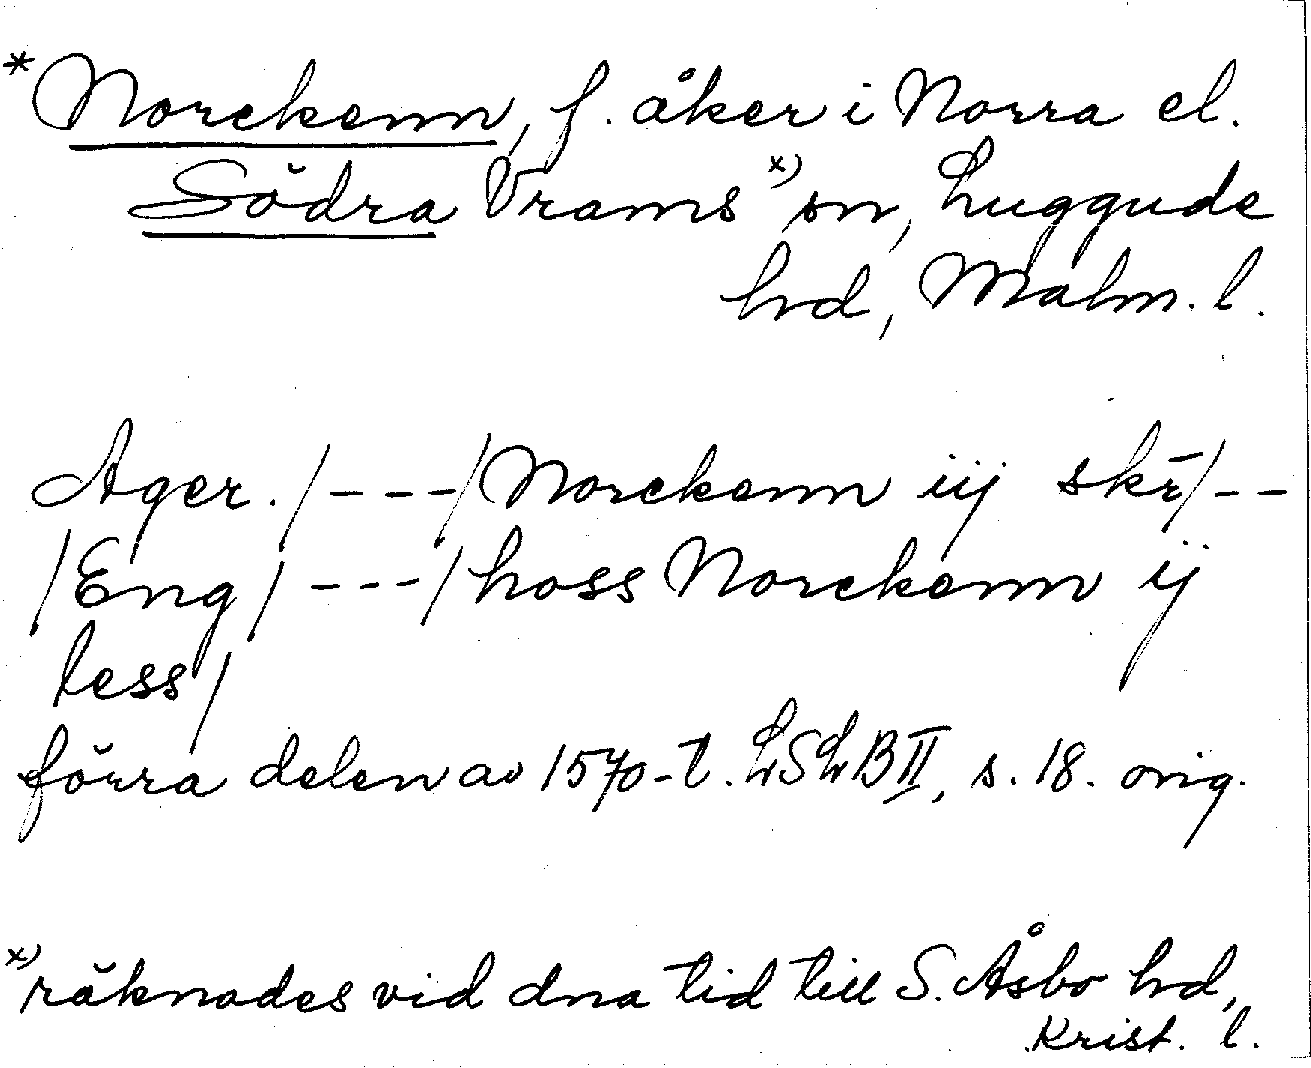 *Norckenn, f. åker i Norra el.
Södra Vrams x) sn, Luggude
hd, Malm. l.
Ager. /---/ Norckenn iij skr̄ /--
/Eng/ ---/ hoss Norckenn ij
less/
förra delen av 1570-t. LSLB II, s. 18. orig.
x) räknades vid dna tid till S. Åsbo hd,
Krist. l.